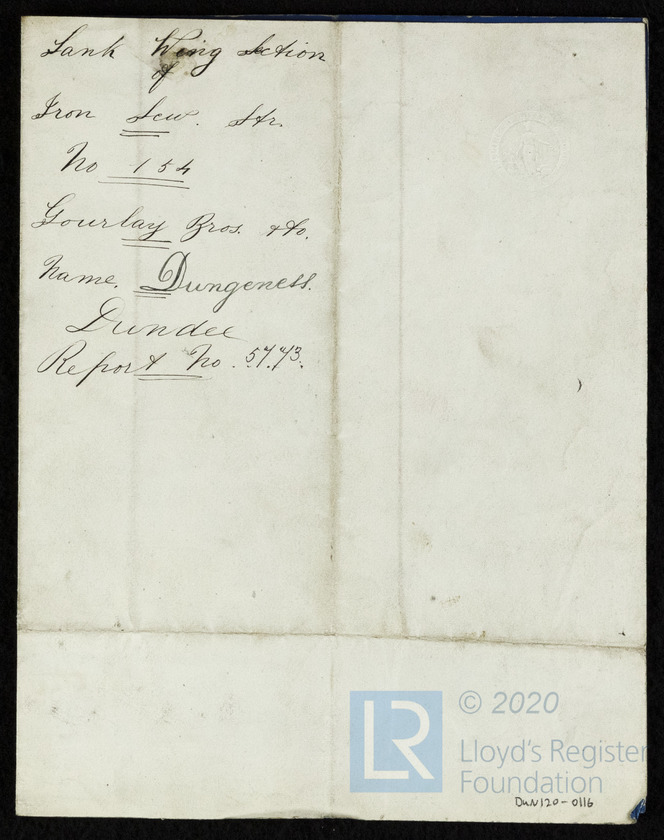 Tank Wing Section
of
Iron Scw. Str.
No 154
Gourlay Bros. & Co.
Name. Dungeness.
Dundee
Report No. 5773.
LR
© 2020
Lloyd's Register
Foundation
DUN120-0116